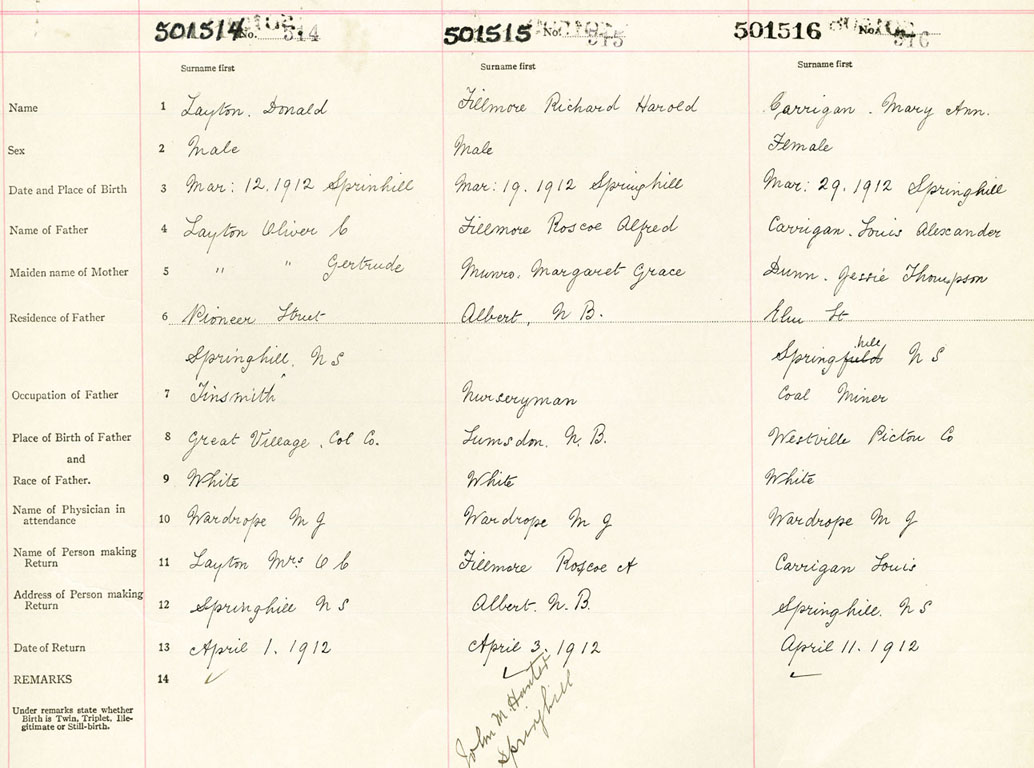 501514 No. 514 501515 No. 515 501516 No. 516
Surname first Surname first Surname first
Name 1 Layton. Donald Fillmore Richard Harold Carrigan. Mary Ann.
Sex 2 Male Male Female
Date and Place of Birth 3 Mar: 12. 1912 Sprinhill Mar: 19. 1912 Springhill Mar: 29. 1912 Springhill
Name of Father 4 Layton Oliver C Fillmore Roscoe Alfred Carrigan. Louis Alexander
Maiden name of Mother 5 " " Gertrude Munro. Margaret Grace Dunn. Jessie Thompson
Residence of Father 6 Pioneer Street Albert, N B. Elm St
hill
Springhill, N S Springfield N S
Occupation of Father 7 Tinsmith Nurseryman Coal Miner
Place of Birth of Father 8 Great Village. Col Co. Lumsdon. N. B. Westville Pictou Co
and
Race of Father. 9 White White White
Name of Physician in
attendance 10 Wardrope M J Wardrope M J Wardrope M J
Name of Person making
Return 11 Layton Mrs O C Fillmore Roscoe A Carrigan Louis
Address of Person making
Return 12 Springhill N S Albert. N. B. Springhill. N S
Date of Return 13 April 1. 1912 April 3. 1912 April 11. 1912
REMARKS 14 ✓ ✓ ✓
Under remarks state whether
Birth is Twin, Triplet, Ille-
gitimate or Still-birth.
John M. Hunter
Springhill